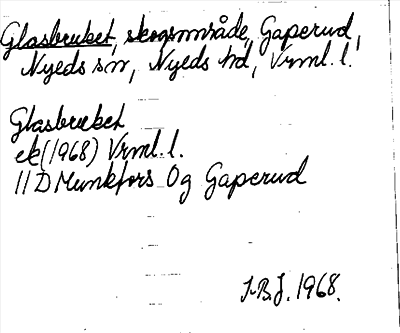 Glasbruket, skogsområde, Gaperud,
Nyeds sn, Nyeds hd, Vrml. l.
Glasbruket
ek (1968) Vrml. l.
11D Munkfors Og Gaperud
I.B.J. 1968.